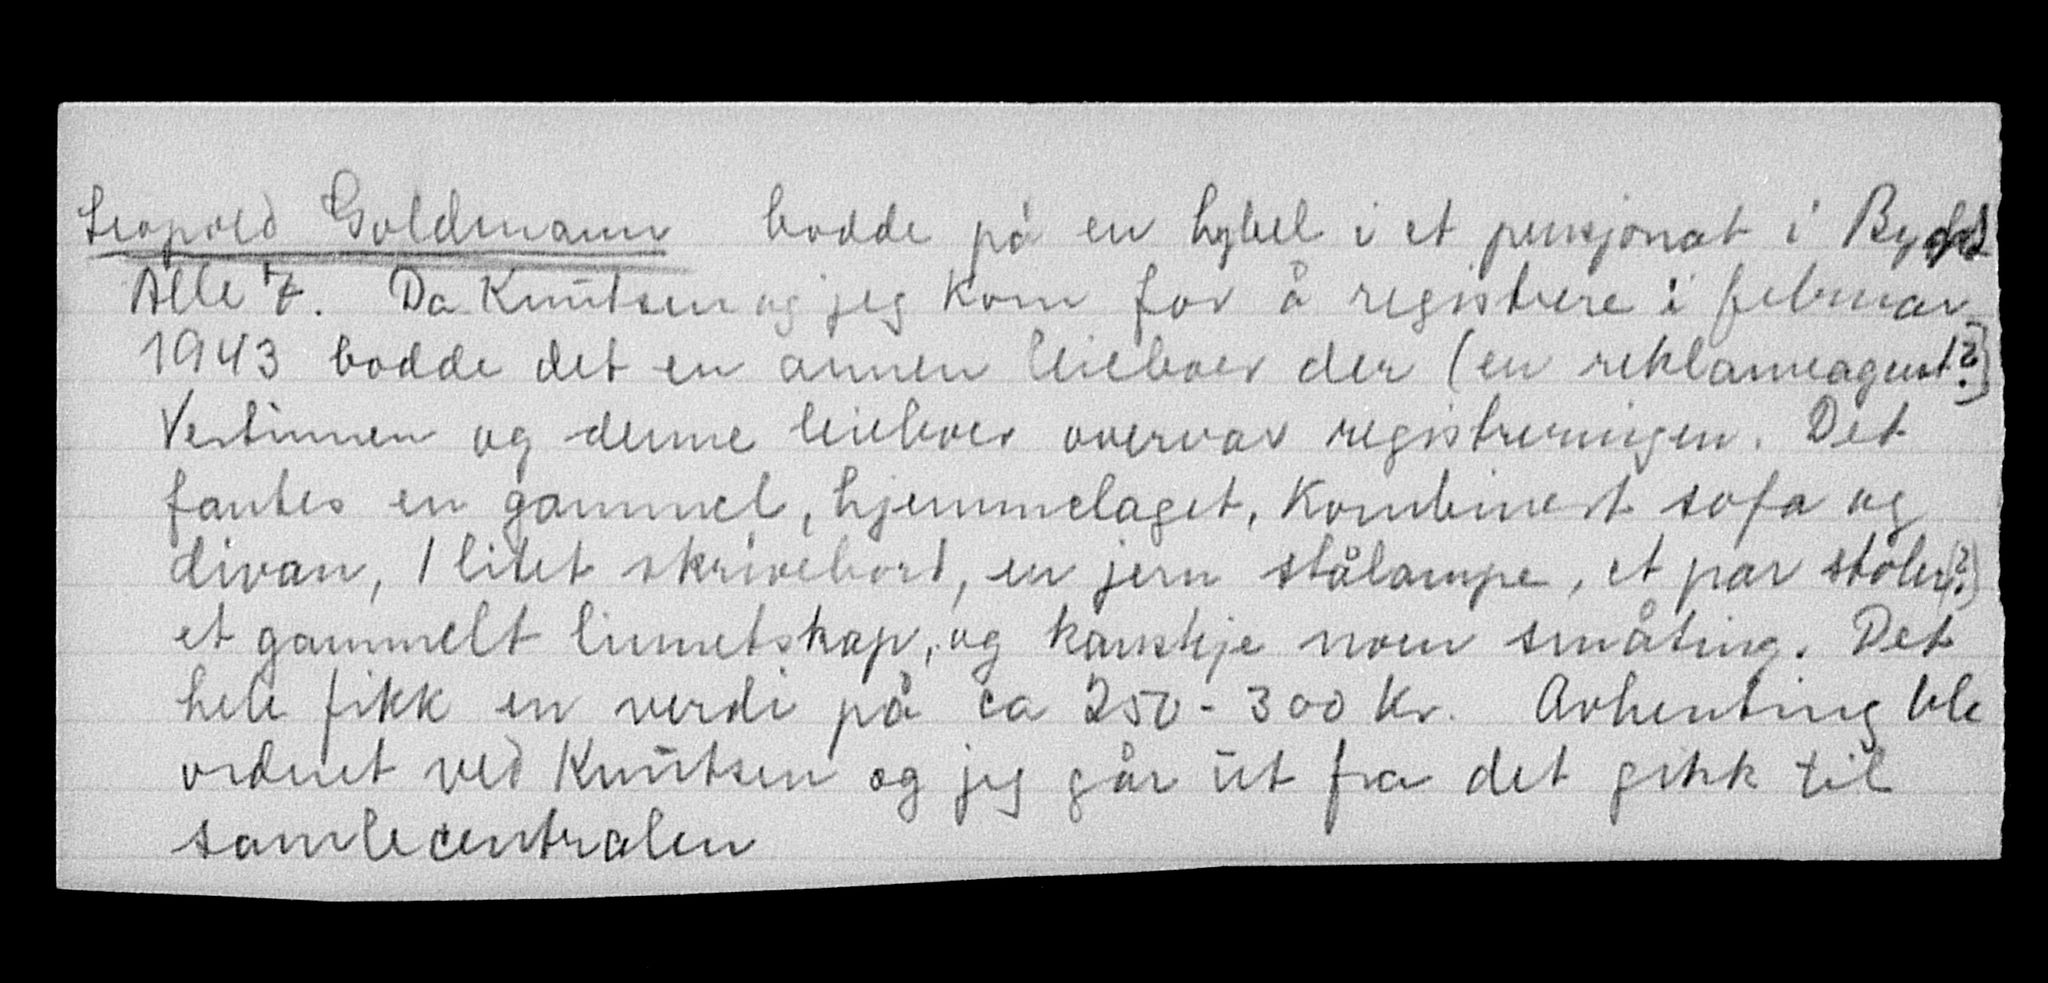 Leopold Goldmann bodde på en hybel i et pensjonat i Bygd
Alle 7. Da Knutsen og jeg kom for å registrere i februar
1943 bodde det en annen leieboer der (en reklameagent?)
Vertinnen og denne leieboer overvar registreringen. Det
fantes en gammel, hjemmelaget, kombinert sofa og
divan, 1 litet skrivebord, en jern stålampe, et par stoler(?)
et gammelt linnetskap, og kanskje noen småting. Det
hele fikk en verdi på ca 250-300 kr. Avhenting ble
ordnet ved Knutsen og jeg går ut fra det gikk til
samlecentralen